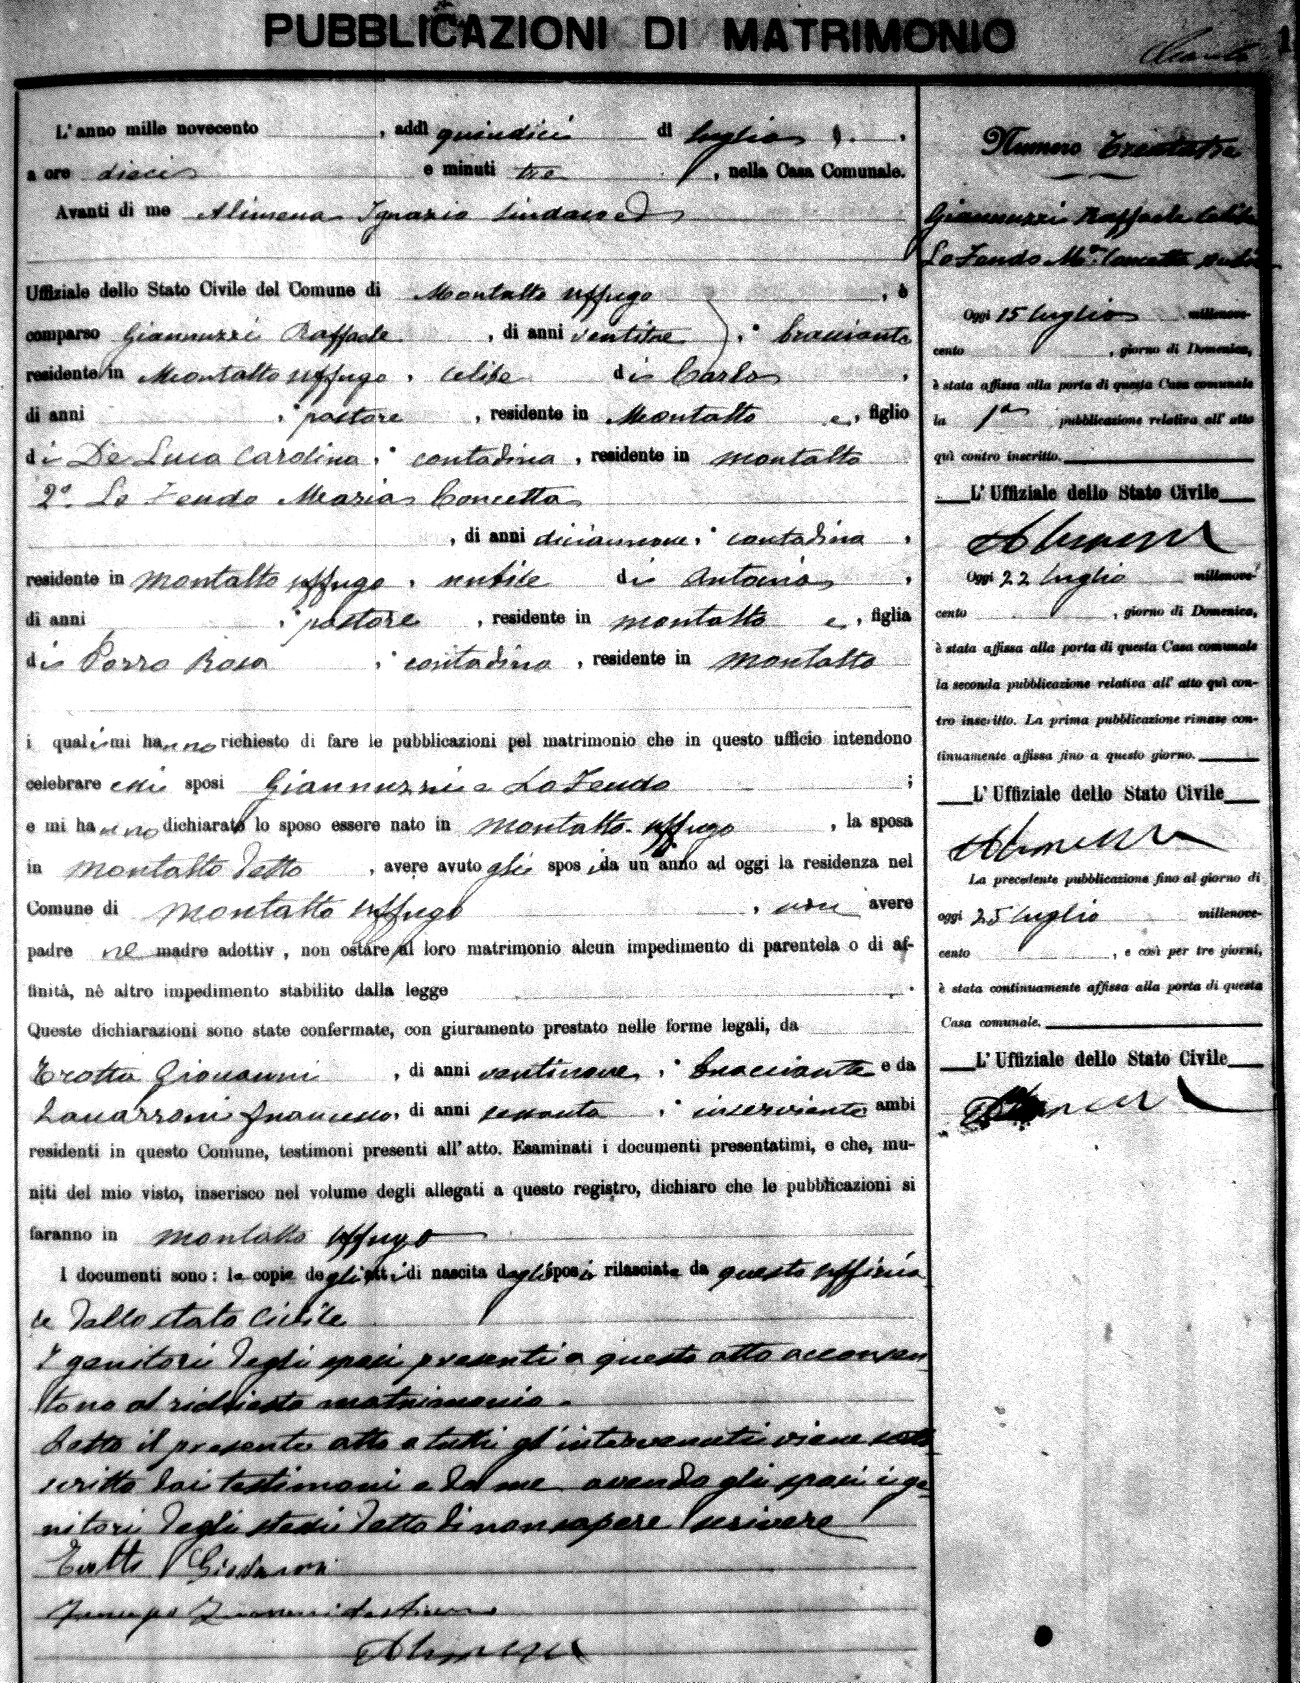 PUBBLICAZIONI DI MATRIMONIO
L'anno mille novecento , addì quindici di luglio
a ore dieci e minuti tre , nella Casa Comunale.
Avanti di me Alimena Ignazio Sindaco ed
Uffiziale dello Stato Civile del Comune di Montalto Uffugo , è
comparso Giannuzzi Raffaele , di anni ventitre , bracciante
residente in Montalto Uffugo , celibe di Carlo ,
di anni , pastore , residente in Montalto e , figlio
di De Luca Carolina , contadina , residente in Montalto
2° Lo Feudo Maria Concetta
, di anni diciannove , contadina ,
residente in Montalto Uffugo , nubile di Antonio ,
di anni , pastore , residente in Montalto e , figlia
di Porro Rosa , contadina , residente in Montalto
i quali mi hanno richiesto di fare le pubblicazioni pel matrimonio che in questo ufficio intendono
celebrare essi sposi Giannuzzi e Lo Feudo ;
e mi hanno dichiarato lo sposo essere nato in Montalto Uffugo , la sposa
in Montalto detto , avere avuto gli sposi da un anno ad oggi la residenza nel
Comune di Montalto Uffugo , non avere
padre nè madre adottiv , non ostare al loro matrimonio alcun impedimento di parentela o di af-
finità, nè altro impedimento stabilito dalla legge .
Queste dichiarazioni sono state confermate, con giuramento prestato nelle forme legali, da
Trotta Giovanni , di anni ventinove , bracciante e da
Francesco, di anni sessanta , inserviente ambi
residenti in questo Comune, testimoni presenti all' atto. Esaminati i documenti presentatimi, e che, mu-
niti del mio visto, inserisco nel volume degli allegati a questo registro, dichiaro che le pubblicazioni si
faranno in Montalto Uffugo
I documenti sono: le copie degli atti di nascita degli sposi rilasciate da questo Uffizia
le dello stato Civile
I genitori degli sposi presenti a questo atto acconsen
tono al richiesto matrimonio.
Letto il presente atto a tutti gl'intervenuti viene sotto
scritto dai testimoni e da me avendo gli sposi i ge-
nitori degli stessi detto di non sapere scrivere
Trotta Giovanni
Alimena
Numero trentatre
Giannuzzi Raffaele celibe
Lo Feudo Mª Concetta nubile
Oggi 15 luglio millenove-
cento , giorno di Domenica,
è stata affissa alla porta di questa Casa comunale
la 1ª pubblicazione relativa all' atto
qui contro inscritto.
L' Uffiziale dello Stato Civile
Alimena
Oggi 22 luglio millenove-
cento , giorno di Domenica,
è stata affissa alla porta di questa Casa comunale
la seconda pubblicazione relativa all' atto quì con-
tro inscritto. La prima pubblicazione rimase con-
tinuamente affissa fino a questo giorno.
L' Uffiziale dello Stato Civile
Alimena
La precedente pubblicazione fino al giorno di
oggi 25 luglio millenove-
cento , e così per tre giorni,
è stata continuamente affissa alla porta di questa
Casa comunale.
L' Uffiziale dello Stato Civile
Alimena